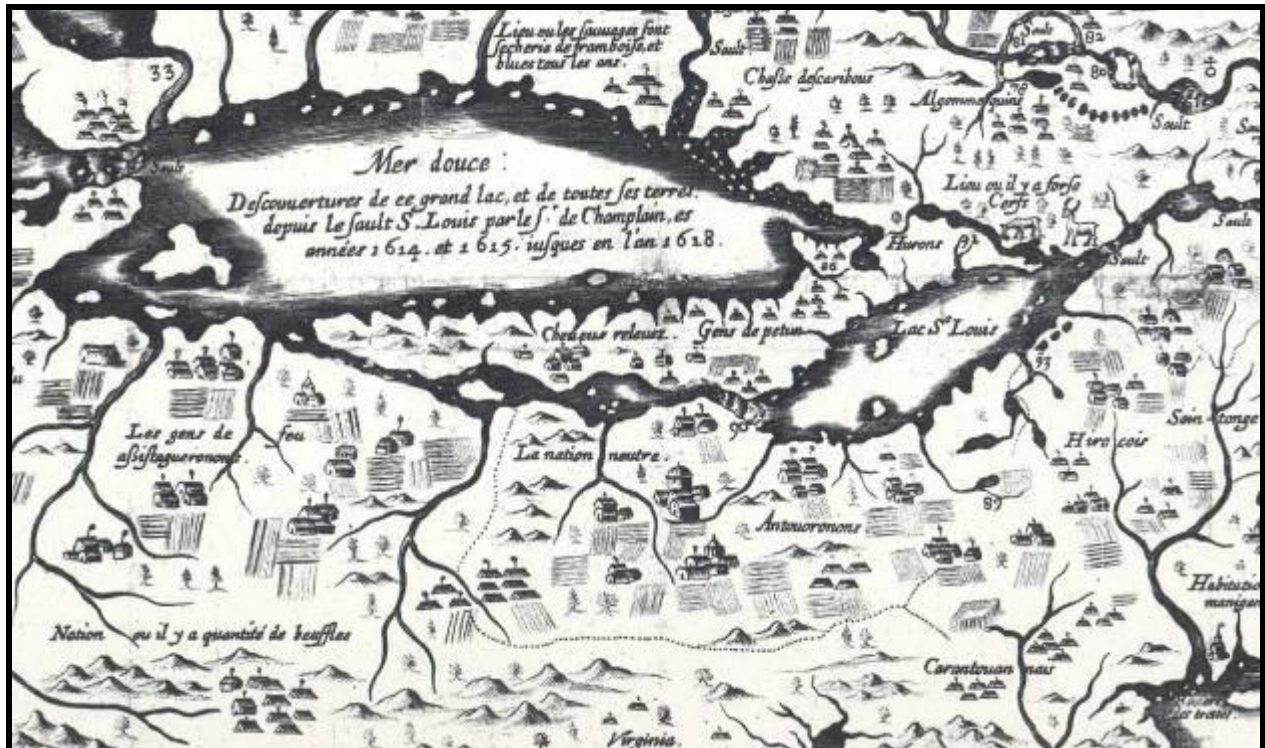 Lieu ou les sauuages font
secherie de framboise, et
blues tous les ans.
33
Sault
Sault
Chasse des caribous
Algommequins
Sault
81
82
80
78
Sault
Mer douce :
Descouuertures de ce grand lac, et de toutes ses terres.
depuis le sault St Louis par le sr. de Champlain, es
années 1614. et 1615. iusques en l'an 1618.
Lieu ou il y a forse
Cerfs
Hurons
Sault
Sault
86
Cheueus releuez.
Gens de petun
Lac St Louis
93
90
Les gens de feu
assistagueronons.
La nation neutre.
Hirocois
89
Antouoronons
Habitatio
Nation ou il y a quantité de beuffles
Carantouannais
Virginia.